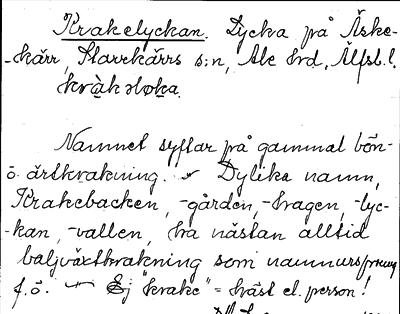 Krakelyckan. Lycka på Äske-
-kärr, Starrkärrs s:n, Ale hrd, Älfsb. l.
Namnet syftar på gammal bön-
o. ärtkrakning. Dylika namn,
Krakebacken, -gården, -hagen, -lyc-
-kan, -vallen, ha nästan alltid
baljväxtkrakning som namnursprung
f. ö. Ej "krake" = häst el. person!